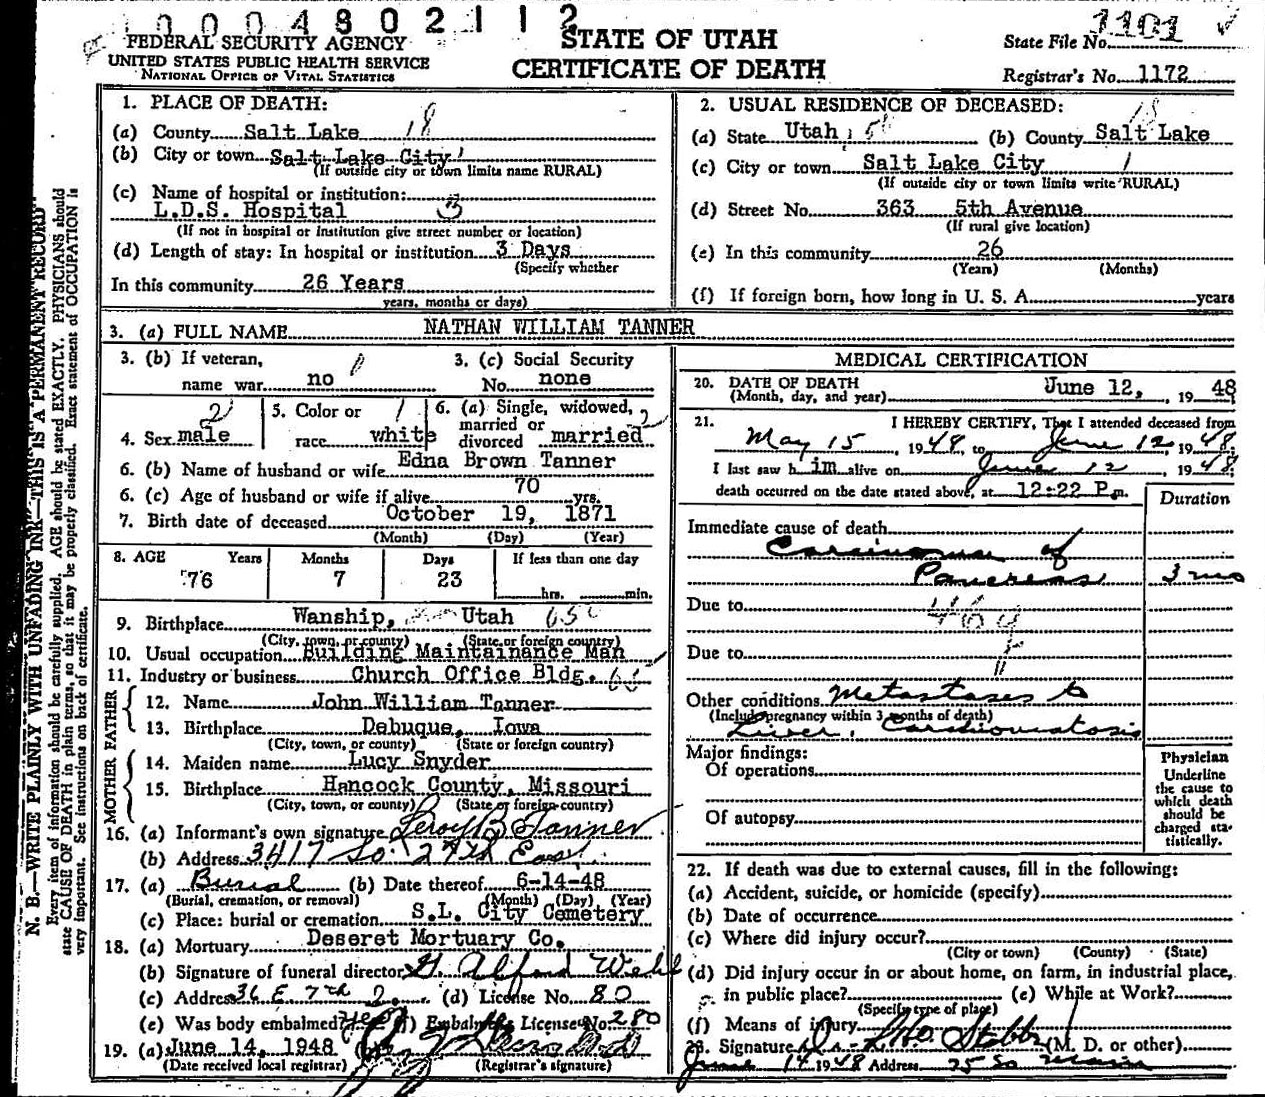 0 0 0 4 8 0 2 1 1 2
FEDERAL SECURITY AGENCY
UNITED STATES PUBLIC HEALTH SERVICE
NATIONAL OFFICE OF VITAL STATISTICS
STATE OF UTAH
CERTIFICATE OF DEATH
State File No. 1101
Registrar's No. 1172
N. B.—WRITE PLAINLY WITH UNFADING INK—THIS IS A PERMANENT RECORD
Every item of information should be carefully supplied. AGE should be stated EXACTLY. PHYSICIANS should
state CAUSE OF DEATH in plain terms, so that it may be properly classified. Exact statement of OCCUPATION is
very important. See instructions on back of certificate.
1. PLACE OF DEATH:
(a) County Salt Lake 18
(b) City or town Salt Lake City
(If outside city or town limits name RURAL)
(c) Name of hospital or institution:
L.D.S. Hospital 3
(If not in hospital or institution give street number or location)
(d) Length of stay: In hospital or institution 3 Days
(Specify whether
In this community 26 Years
years, months or days)
2. USUAL RESIDENCE OF DECEASED:
(a) State Utah (b) County Salt Lake
(c) City or town Salt Lake City 1
(If outside city or town limits write RURAL)
(d) Street No. 363 5th Avenue
(If rural give location)
(e) In this community 26
(Years) (Months)
(f) If foreign born, how long in U. S. A. years
3. (a) FULL NAME NATHAN WILLIAM TANNER
3. (b) If veteran, 3. (c) Social Security
name war no No. none
2 5. Color or 1 6. (a) Single, widowed, 2
married or
4. Sex male race white divorced married
6. (b) Name of husband or wife Edna Brown Tanner
6. (c) Age of husband or wife if alive 70 yrs.
7. Birth date of deceased October 19, 1871
(Month) (Day) (Year)
8. AGE Years Months Days If less than one day
76 7 23 hrs. min.
9. Birthplace Wanship, Utah
(City, town, or county) (State or foreign country)
10. Usual occupation Building Maintainance Man
11. Industry or business Church Office Bldg.
FATHER
12. Name John William Tanner
13. Birthplace Debuque, Iowa
(City, town, or county) (State or foreign country)
MOTHER
14. Maiden name Lucy Snyder
15. Birthplace Hancock County, Missouri
(City, town, or county) (State or foreign country)
16. (a) Informant's own signature Leroy B Tanner
(b) Address 3417 So. 27th East
17. (a) Burial (b) Date thereof 6-14-48
(Burial, cremation, or removal) (Month) (Day) (Year)
(c) Place: burial or cremation S.L. City Cemetery
18. (a) Mortuary Deseret Mortuary Co.
(b) Signature of funeral director Alford
(c) Address 36 E. 7th (d) License No. 80
(e) Was body embalmed? Yes (f) Embalmer's License No. 280
19. (a) June 14, 1948
(Date received local registrar) (Registrar's signature)
MEDICAL CERTIFICATION
20. DATE OF DEATH
(Month, day, and year) June 12, , 19 48
21. I HEREBY CERTIFY, That I attended deceased from
May 15, 1948, to June 12, 1948.
I last saw him alive on June 12 1948,
death occurred on the date stated above, at 12:22 P.m.
Duration
Immediate cause of death
Carcinoma of
Pancreas 3 mo
Due to
Due to
Other conditions Metastases to
(Include pregnancy within 3 months of death)
Liver, Carcinomatosis
Major findings:
Of operations
Of autopsy
Physician
Underline
the cause to
which death
should be
charged sta-
tistically.
22. If death was due to external causes, fill in the following:
(a) Accident, suicide, or homicide (specify)
(b) Date of occurrence
(c) Where did injury occur?
(City or town) (County) (State)
(d) Did injury occur in or about home, on farm, in industrial place,
in public place? (e) While at Work?
(Specify type of place)
(f) Means of injury
23. Signature (M. D. or other)
June 14 1948 Address 25 So Main